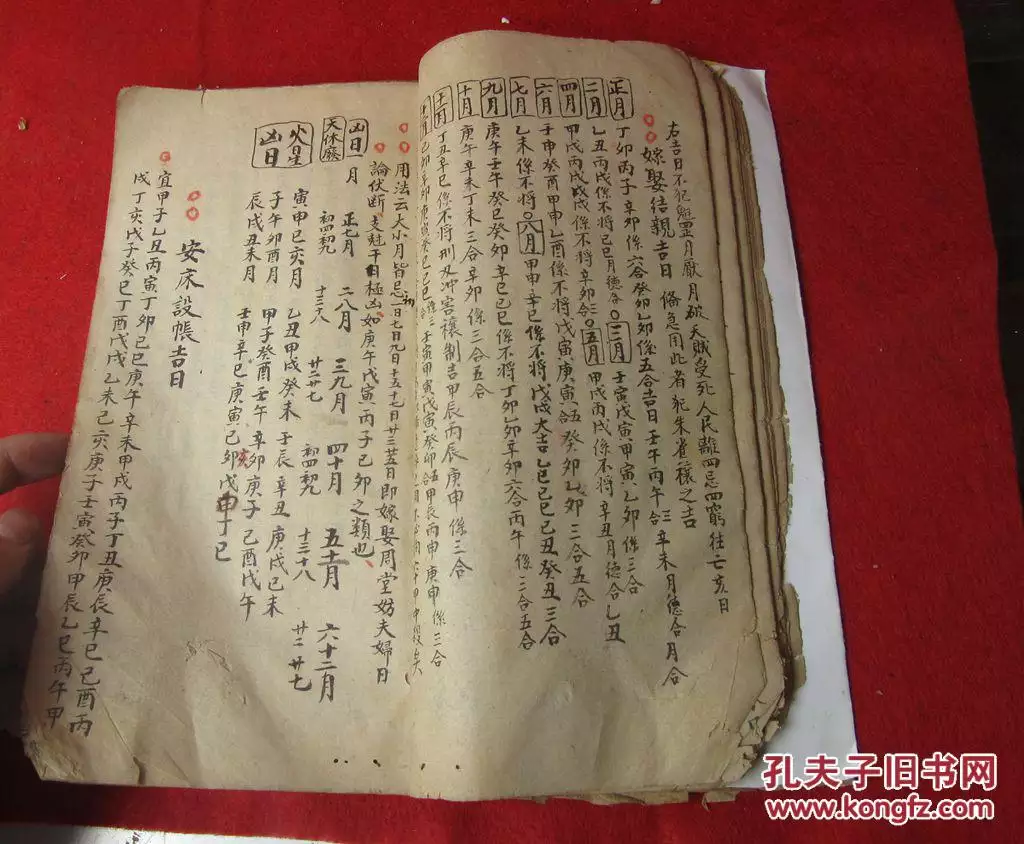 右吉日不犯魁罡月厭月破天賊受死人民離四忌四窮往亡亥日
嫁娶結親吉日 俻急用此者犯朱雀禳之吉
正月 丁卯丙子辛卯係六合癸卯乙卯係五合吉日壬午丙午合三辛未月德合月合
二月 乙丑丙戌係不將己巳月德合 三月 壬寅戊寅甲寅乙卯係三合
四月 甲戌丙戌戊戌係不將辛卯合 五月 甲戌丙戌係不將辛丑月德合乙丑
六月 壬申癸酉甲申乙酉係不將戊寅庚寅五合癸卯乙卯三合五合
七月 乙未係不將 八月 甲申辛巳係不將戊戌大吉乙巳己巳己丑癸丑三合
九月 庚午壬午癸巳癸卯辛巳己巳係不將丁卯乙卯辛卯六合丙午係三合五合
十月 庚午辛未丁未三合辛卯係三合五合
丁丑辛巳係不將刑及冲害禳制吉甲辰丙辰庚申係三合
壬寅甲寅戊寅癸卯五甲辰丙申庚申係三合
用法云大小月皆忌一日七日九日十五十七日廿三廿五日即嫁娶周堂妨夫婦日
論伏断支尅干日極凶如庚午戊寅丙子己卯之類也
凶日一月 正七月 二八月 三九月 四十月 五十一月 六十二月
天休廢 初四初九 十三十八 廿二廿七 初四初九 十三十八 廿二廿七
火星凶日 寅申巳亥月 乙丑甲戌癸未壬辰辛丑庚戌己未
子午卯酉月 甲子癸酉壬午辛卯庚子己酉戊午
辰戌丑未月 壬申辛巳庚寅己卯戊申丁巳
亥
安床設帳吉日
宜甲子乙丑丙寅丁卯己巳庚午辛未甲戌丙子丁丑庚辰辛巳己酉丙
戌丁亥戊子癸巳丁酉戊戌乙未己亥庚子壬寅癸卯甲辰乙巳丙午甲
孔夫子旧书网
www.kongfz.com